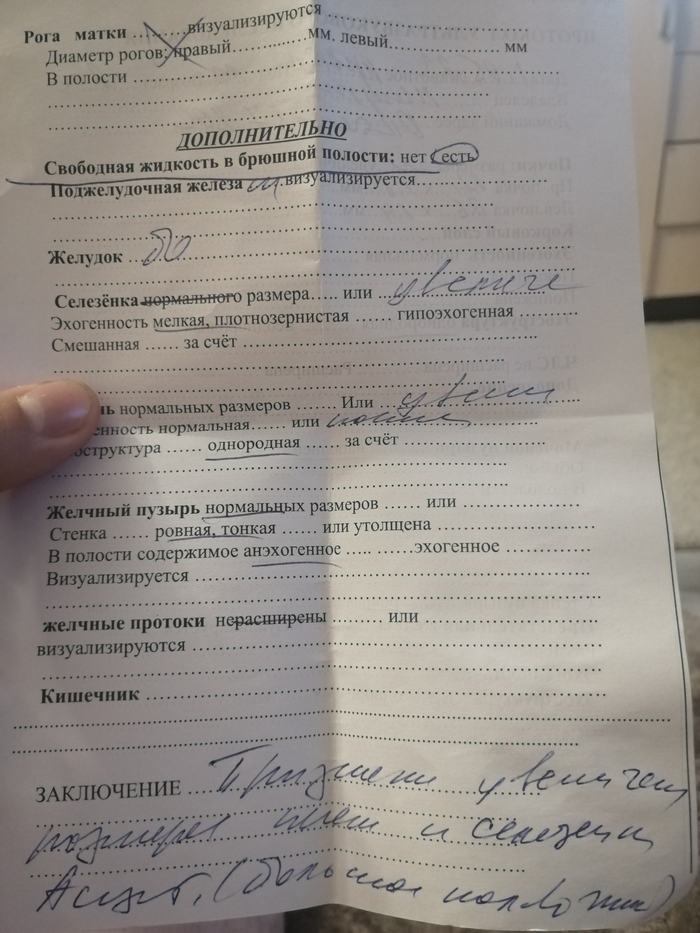 Рога матки ...... визуализируются ..................
Диаметр рогов: правый..............мм. левый..................... мм
В полости ..................................................
..................................................
..................................................
ДОПОЛНИТЕЛЬНО
Свободная жидкость в брюшной полости: нет есть
Поджелудочная железа ..... визуализируется.......................
..................................................
..................................................
Желудок ..................................................
Селезёнка нормального размера..... или .. увеличе
Эхогенность мелкая, плотнозернистая ...... гипоэхогенная ..................
Смешанная ...... за счёт ..................................................
..................................................
..................................................
нь нормальных размеров ....... Или .. увели
енность нормальная...... или
оструктура ...... однородная ...... за счёт ..........................
..................................................
..................................................
Желчный пузырь нормальных размеров ........ или ......................
Стенка ...... ровная, тонкая ...... или утолщена ..........................
В полости содержимое анэхогенное ..... .......эхогенное ..............
Визуализируется ..................................................
..................................................
желчные протоки нерасширены ......... или ..............................
визуализируются ..................................................
..................................................
Кишечник ..................................................
..................................................
..................................................
ЗАКЛЮЧЕНИЕ Признаки увеличен
размера печени и селезенки
Асцит. (большое кол-во жидк)